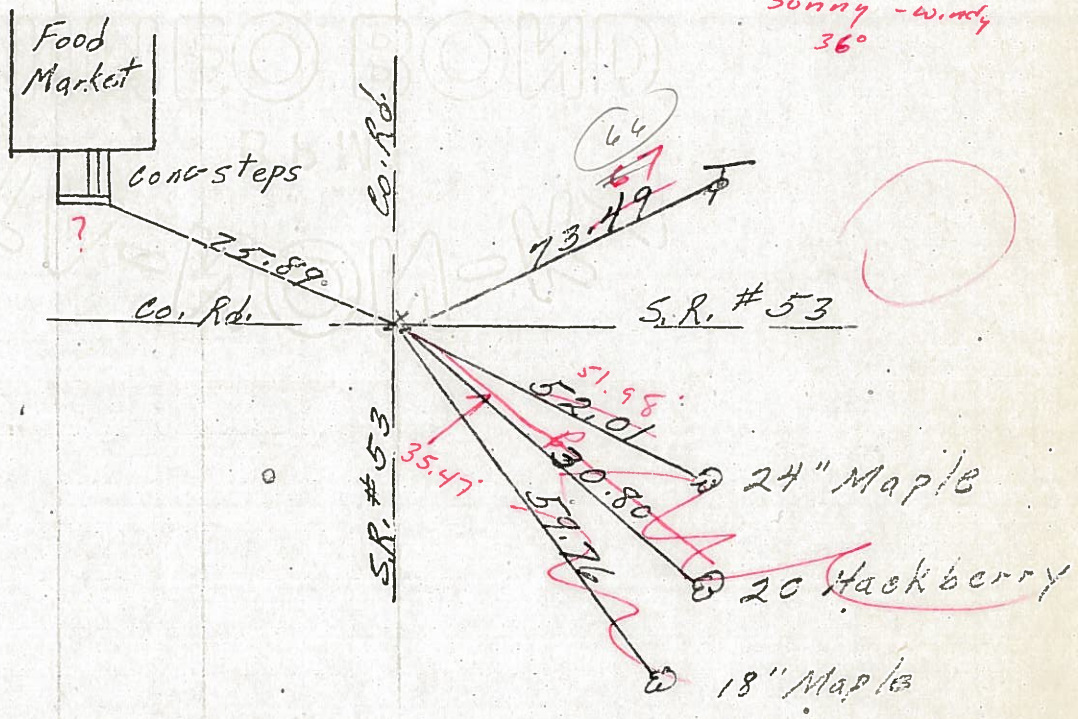 Sunny - Windy
36°
Food
Market
Co. Rd.
Conc steps
?
25.89
66
67
73.49
Co. Rd.
S.R. # 53
51.98
52.01
35.47
30.80
59.76
S.R. # 53
24" Maple
20 Hackberry
18" Maple